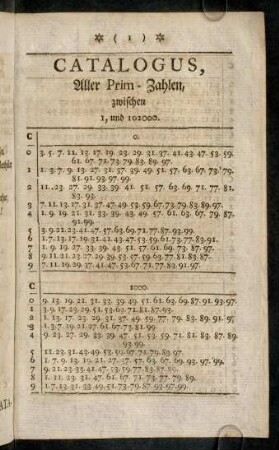 * ( 1 ) *
CATALOGUS,
Aller Prim-Zahlen,
zwischen
1, und 102000.
C 0.
0 3. 5. 7. 11. 13. 17. 19. 23. 29. 31. 37. 41. 43. 47. 53. 59.
61. 67. 71. 73. 79. 83. 89. 97.
1 1. 3. 7. 9. 13. 27. 31. 37. 39. 49. 51. 57. 63. 67. 73. 79.
81. 91. 93. 97. 99.
2 11. 23. 27. 29. 33. 39. 41. 51. 57. 63. 69. 71. 77. 81.
83. 93.
3 7. 11. 13. 17. 31. 37. 47. 49. 53. 59. 67. 73. 79. 83. 89. 97.
4 1. 9. 19. 21. 31. 33. 39. 43. 49. 57. 61. 63. 67. 79. 87.
91. 99.
5 3. 9. 21. 23. 41. 47. 57. 63. 69. 71. 77. 87. 93. 99.
6 1. 7. 13. 17. 19. 31. 41. 43. 47. 53. 59. 61. 73. 77. 83. 91.
7 1. 9. 19. 27. 33. 39. 43. 51. 57. 61. 69. 73. 87. 97.
8 9. 11. 21. 23. 27. 29. 39. 53. 57. 59. 63. 77. 81. 83. 87.
9 7. 11. 19. 29. 37. 41. 47. 53. 67. 71. 77. 83. 91. 97.
C 1000.
0 9. 13. 19. 21. 31. 33. 39. 49. 51. 61. 63. 69. 87. 91. 93. 97.
1 3. 9. 17. 23. 29. 51. 53. 63. 71. 81. 87. 93.
2 1. 13. 17. 23. 29. 31. 37. 49. 59. 77. 79. 83. 89. 91. 97.
3 1. 3. 7. 19. 21. 27. 61. 67. 73. 81. 99.
4 9. 23. 27. 29. 33. 39. 47. 51. 53. 59. 71. 81. 83. 87. 89.
93. 99.
5 11. 23. 31. 43. 49. 53. 59. 67. 71. 79. 83. 97.
6 1. 7. 9. 13. 19. 21. 27. 37. 57. 63. 67. 69. 93. 97. 99.
7 9. 21. 23. 33. 41. 47. 53. 59. 77. 83. 87. 89.
8 1. 11. 23. 31. 47. 61. 67. 71. 73. 77. 79. 89.
9 1. 7. 13. 31. 33. 49. 51. 73. 79. 87. 93. 97. 99.